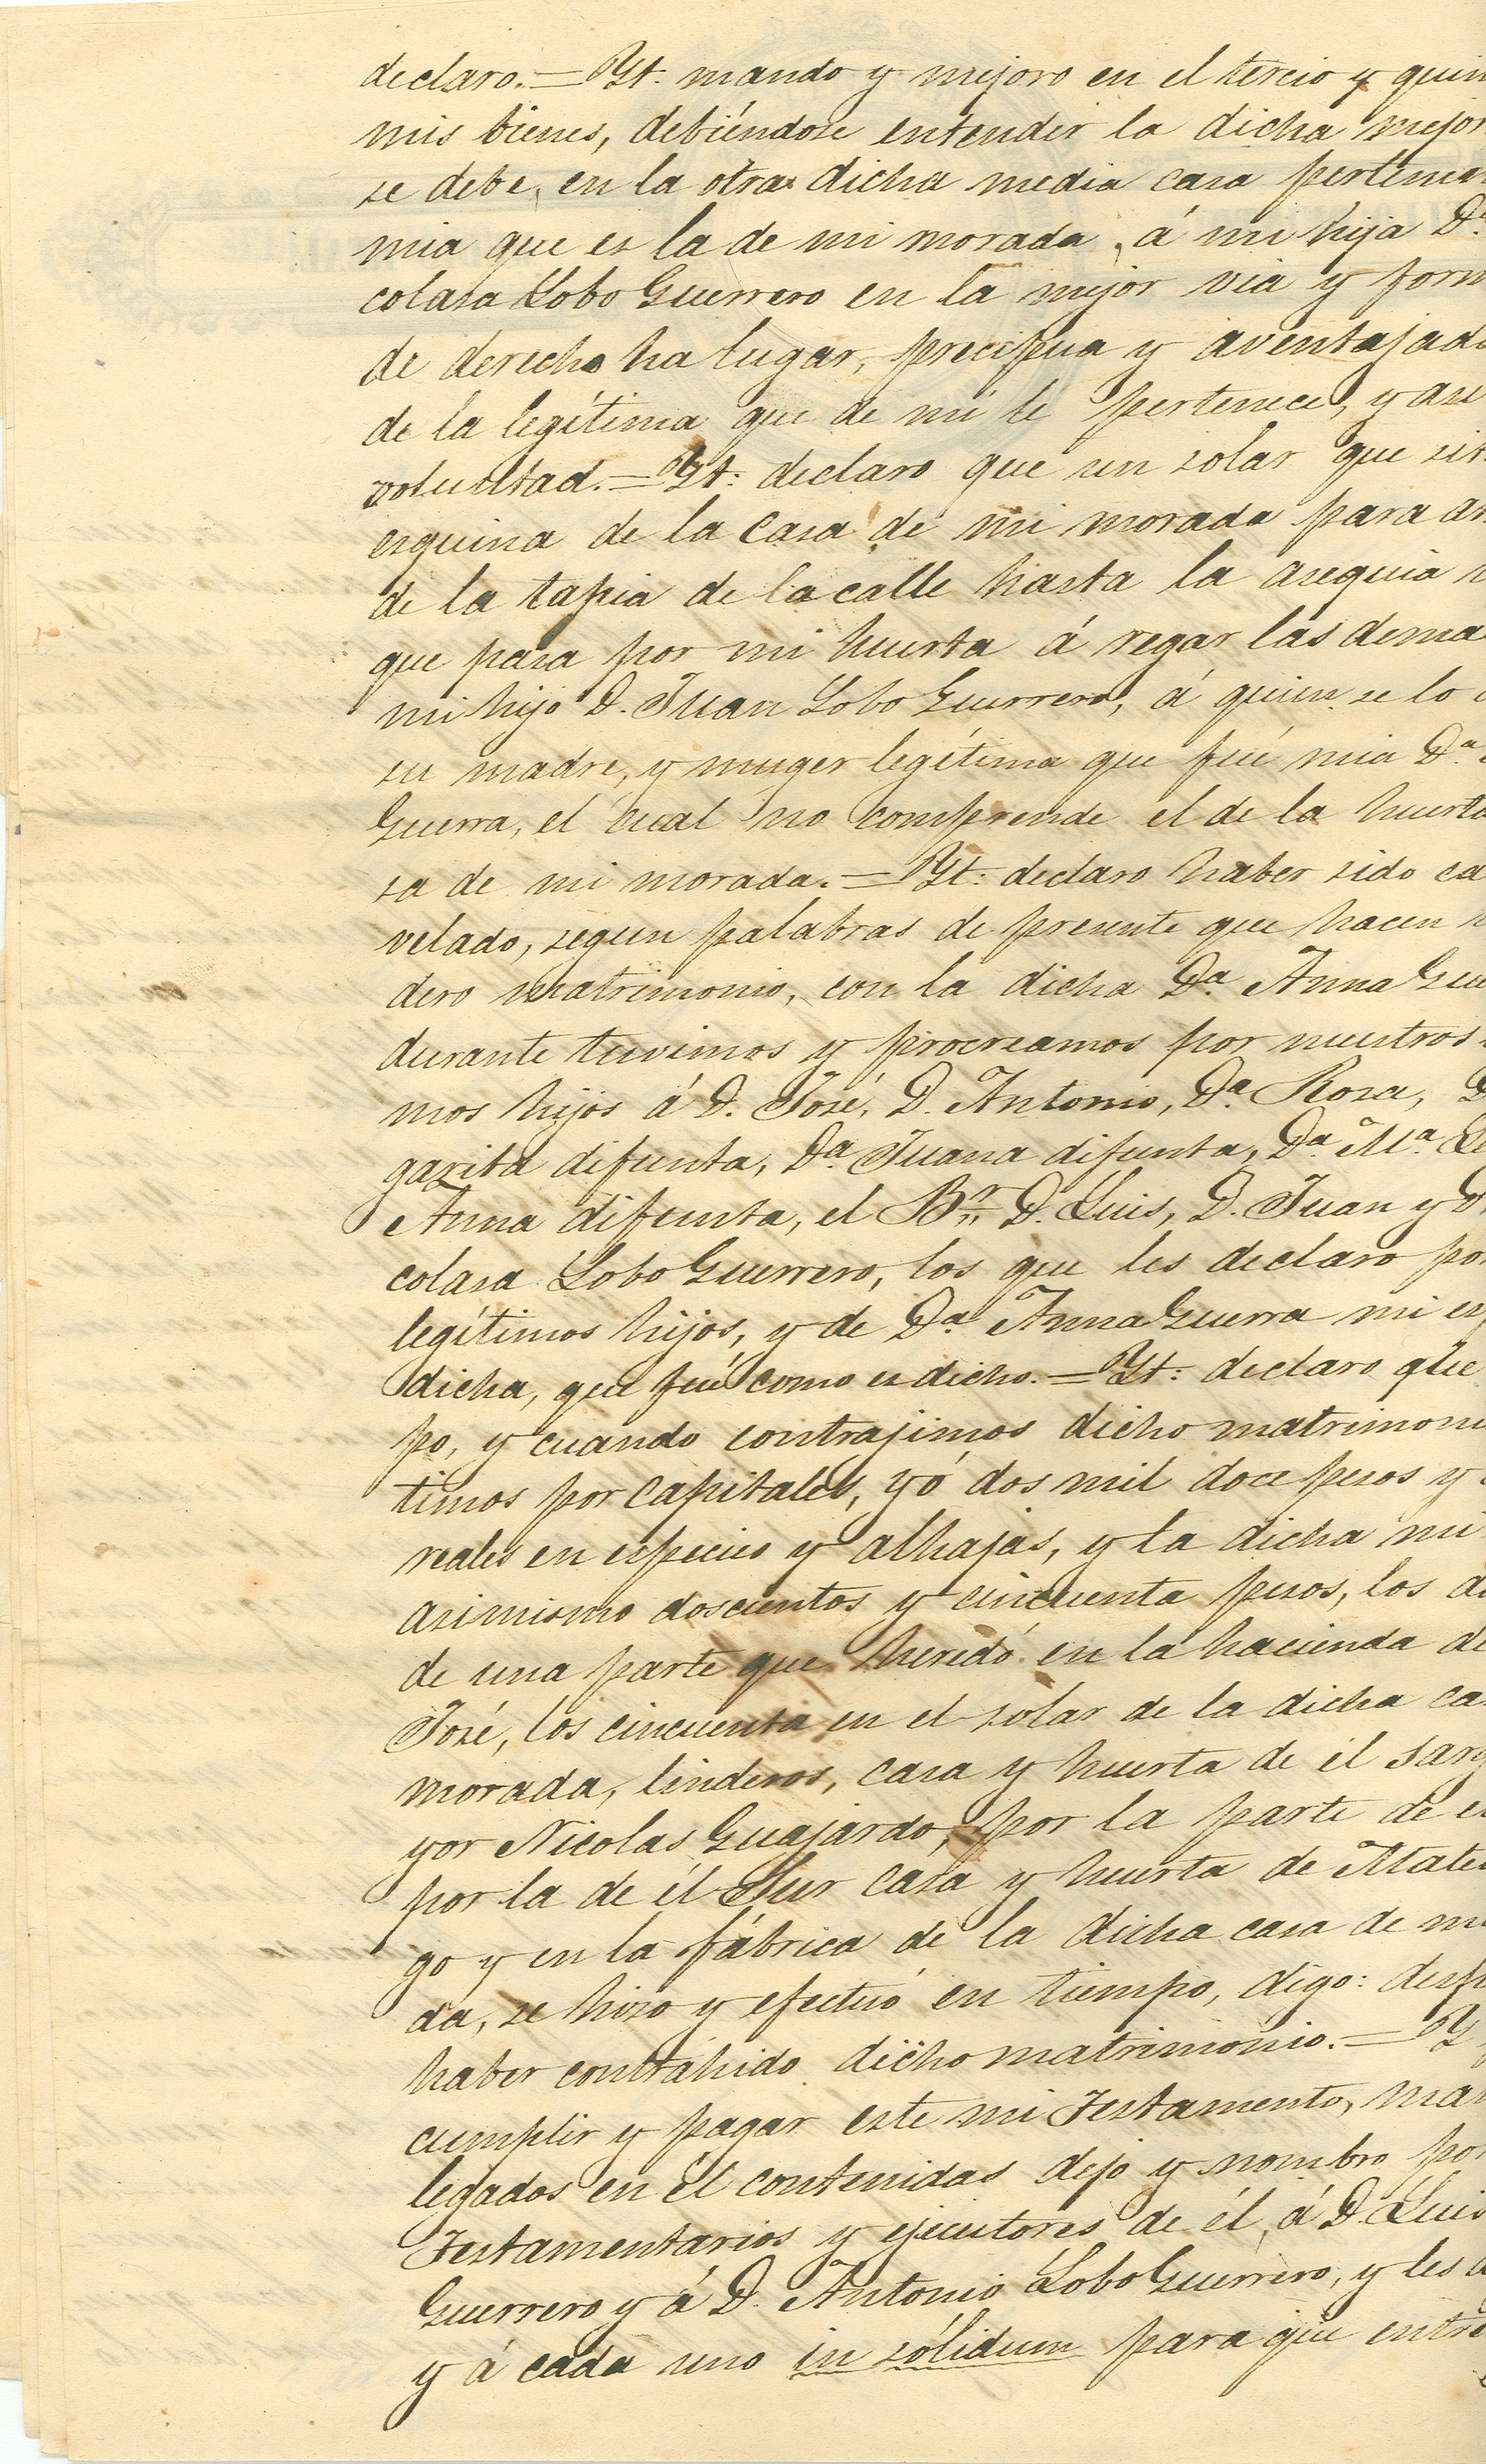 declaro.=Yt. mando y mejoro en el tercio y quin
mis bienes, debiéndose entender la dicha mejor
se debe, en la otra dicha media casa pertenec
mia que es la de mi morada, á mi hija Dª
colasa Lobo Guerrero en la mejor via y form
de derecho ha lugar, precipua y aventajad
de la legítima que de mí le pertenece, y asi
voluntad.=Yt: declaro que un solar que sit
esquina de la casa de mi morada para ar
de la tapia de la calle hasta la asequia
que pasa por mi huerta á regar las dema
mi hijo D. Juan Lobo Guerrero, á quien se lo
su madre, y muger legítima que fué mia Dª
Guerra, el cual no comprende el de la huerta
sa de mi morada.=Yt: declaro haber sido ca
velado, segun palabras de presente que hacen
dero matrimonio, con la dicha Dª Anna Gue
durante tuvimos y procreamos por nuestros
mos hijos á D. José, D. Antonio, Dª Rosa, D
garita difunta, Dª Juana difunta, Dª Mª
Anna difunta, el Br. D. Luis, D. Juan y D
colasa Lobo Guerrero, los que les declaro por
legítimos hijos, y de Dª Anna Guerra mi es
dicha, que fué como es dicho.=Yt: declaro que
po, y cuando contrajimos dicho matrimoni
timos por capitales, yó dos mil doce pesos y
reales en especies y alhajas, y la dicha mi
asimismo doscientos y cincuenta pesos, los d
de una parte que heredó en la hacienda de
José, los cincuenta en el solar de la dicha ca
morada, linderos, casa y huerta de el sarg
yor Nicolas Guajardo, por la parte de e
por la de él Sur casa y huerta de Mate
go y en la fábrica de la dicha casa de m
da, se hizo y efectuó en tiempo, digo: desp
haber contrahido dicho matrimonio.=Y
cumplir y pagar este mi Testamento, man
legados en él contenidas dejo y nombro por
Testamentarios y ejecutores de él, á D. Luis
Guerrero y á D. Antonio Lobo Guerrero, y les
y á cada uno in sólidum para que entre